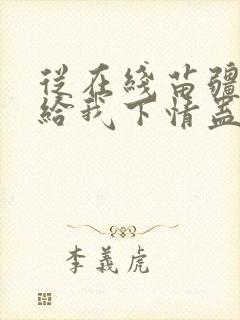 從在綫苗疆
給我下情蠱
李義虎